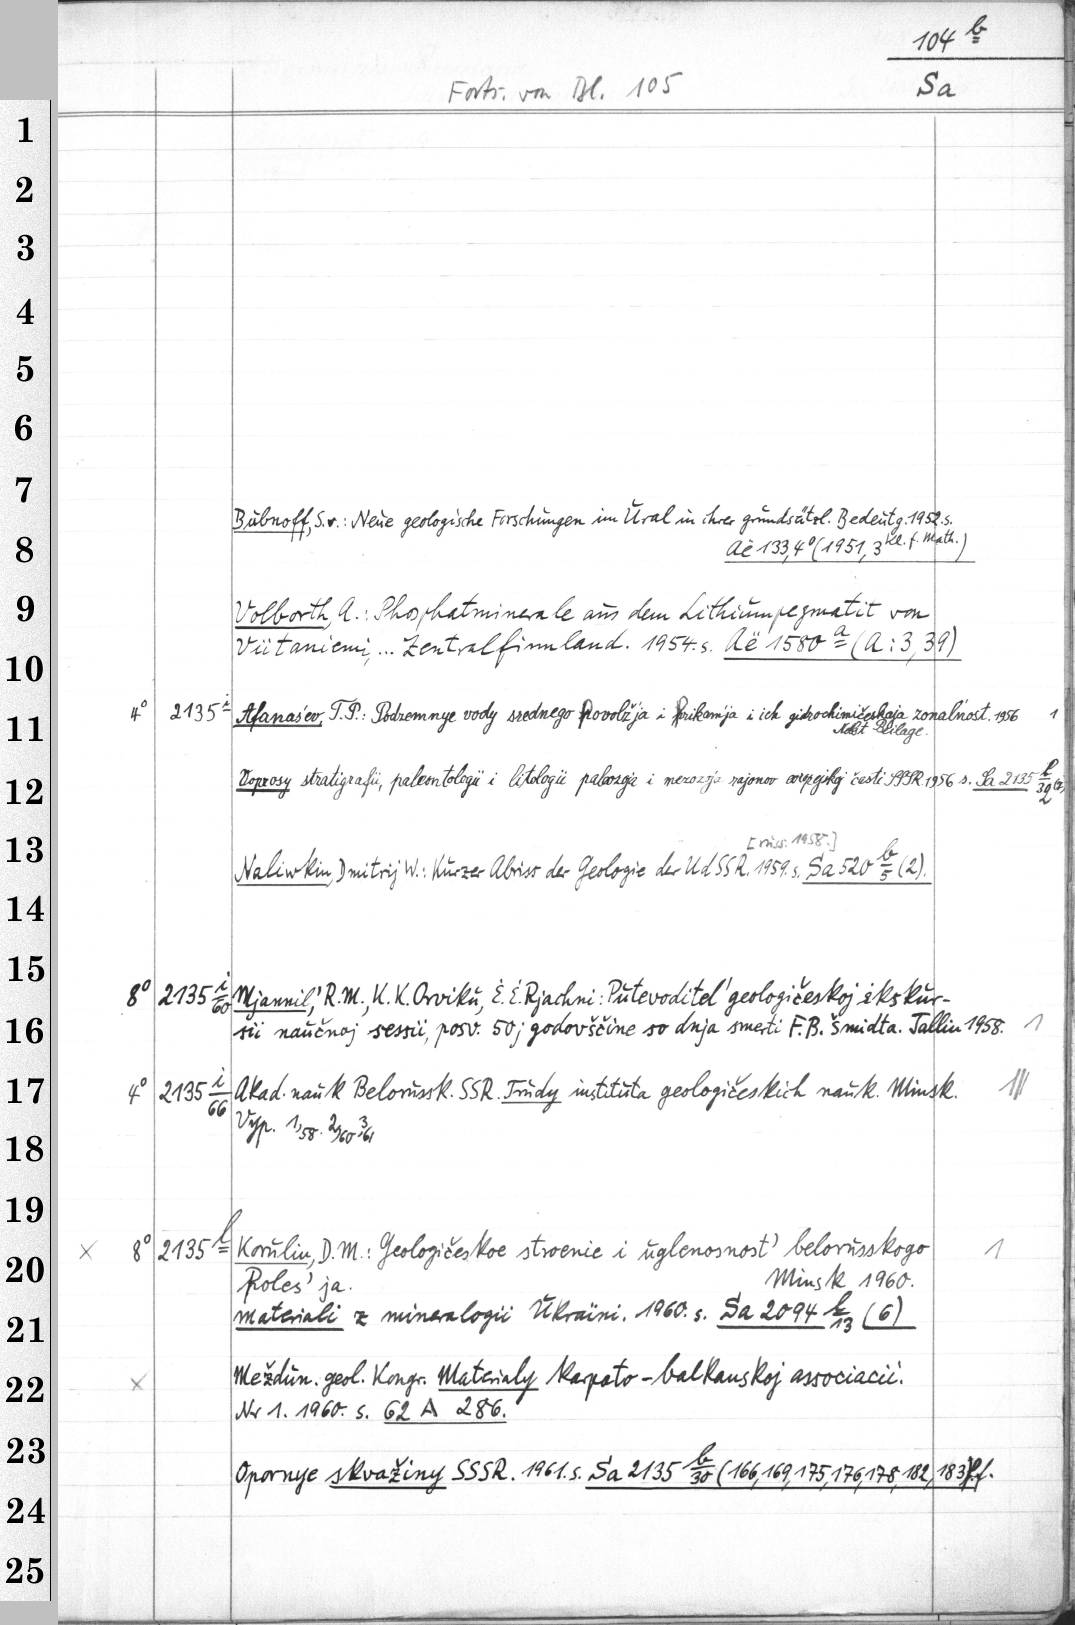 104 b
Forts. von Bl. 105
Sa
Bubnoff, S. v.: Neue geologische Forschungen im Ural in ihrer grundsätzl. Bedeutg. 1952. s.
Aë 133, 4° (1951, 3 Kl. f. Math.)
Volborth, A.: Phosphatminerale aus dem Lithiumpegmatit von
Viitaniemi, ... Zentralfinnland. 1954. s. Aë 1580 a (A: 3, 39)
4° 2135 i Afanas'ev, T.P.: Podzemnye vody srednego Povolž'ja i Prikam'ja i ich gidrochimičeskaja zonal'nost. 1956 1
Nebst Beilage.
Voprosy stratigrafii, paleontologii i litologii paleozoja i mezozoja rajonov evropejskoj časti SSSR. 1956 s. Sa 2135 b/30
[russ. 1958.]
Naliwkin, Dmitrij W.: Kurzer Abriss der Geologie der UdSSR. 1959. s. Sa 520 b/5 (2).
8° 2135 i/60 Mjannil', R.M., K.K. Orviku, Ė. Ė. Rjachni: Putevoditel' geologičeskoj ėkskur-
sii naučnoj sessii, posv. 50j godovščine so dnja smerti F.B. Šmidta. Tallin 1958. 1
4° 2135 i/66 Akad. nauk Belorussk. SSR. Trudy instituta geologičeskich nauk. Minsk. III
Vyp. 1,58. 2,60 3,61
× 8° 2135 l Korulin, D.M.: Geologičeskoe stroenie i uglenosnost' belorusskogo 1
Poles'ja. Minsk 1960.
Materiali z mineralogii Ukraïni. 1960. s. Sa 2094 b/13 (6)
× Meždun. geol. Kongr. Materialy Karpato-balkanskoj associacii.
Nr 1. 1960. s. 62 A 286.
Opornye skvažiny SSSR. 1961. s. Sa 2135 b/30 (166, 169, 175, 176, 178, 182, 183) ff.
1
2
3
4
5
6
7
8
9
10
11
12
13
14
15
16
17
18
19
20
21
22
23
24
25